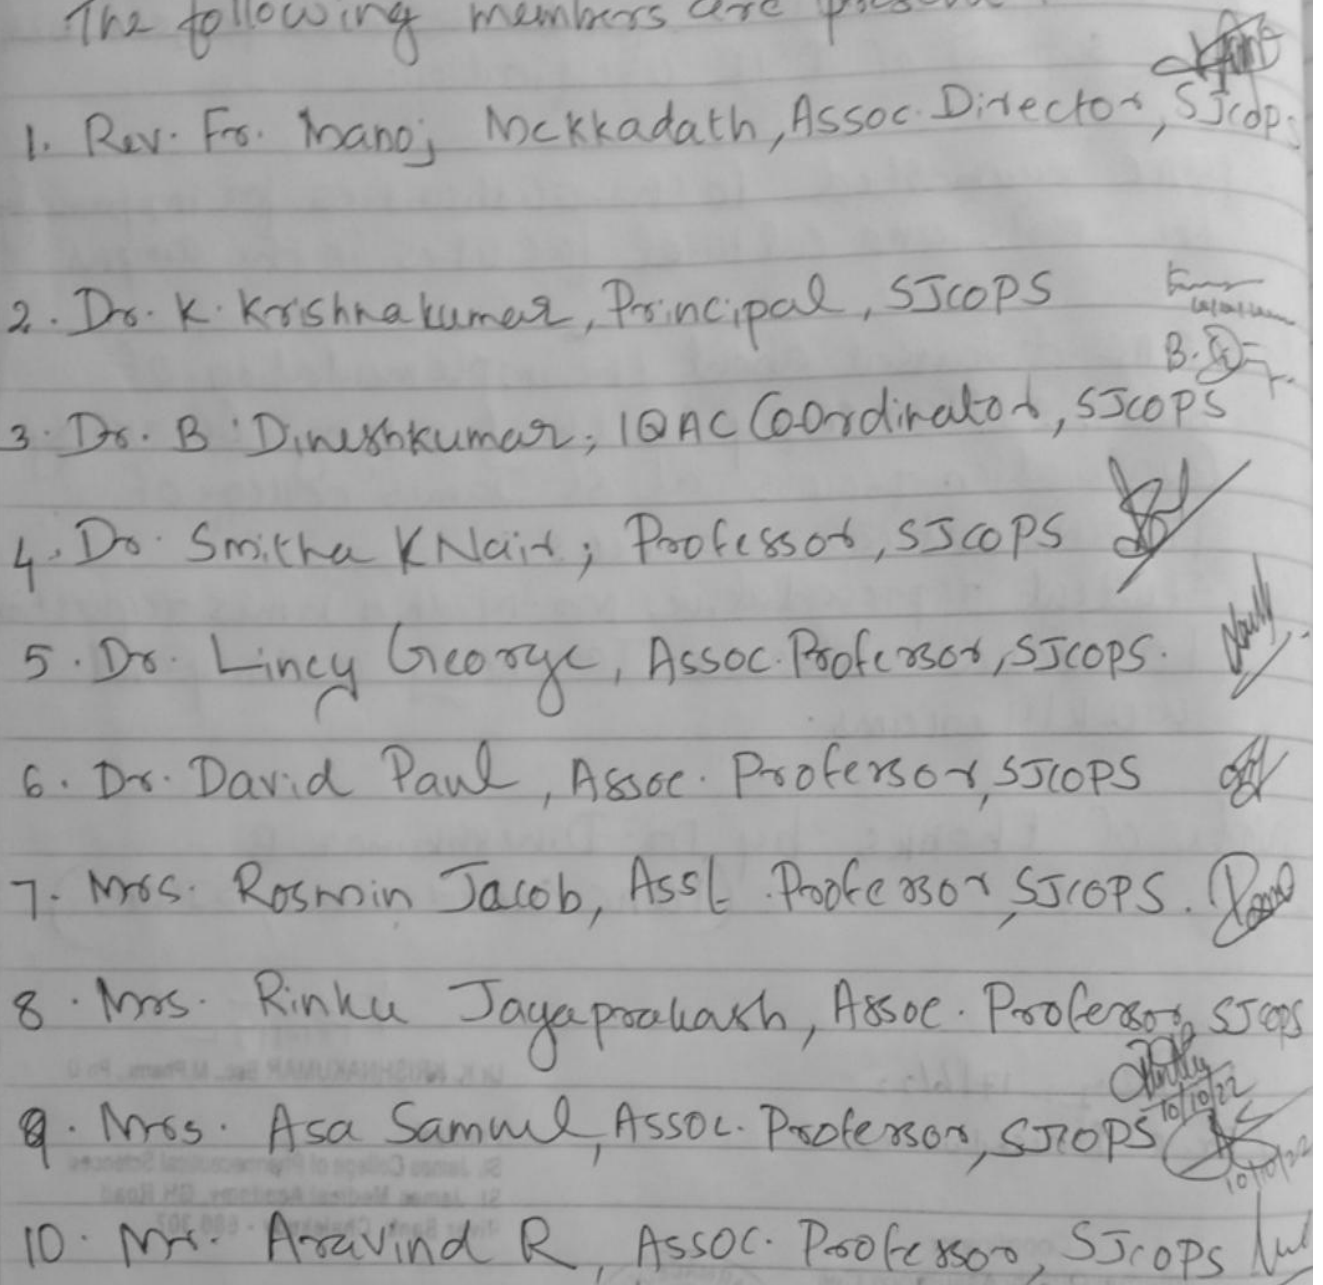 The following members are present
1. Rev. Fr. Manoj Mekkadath, Assoc. Director, SJCOPS
2. Dr. K. Krishnakumar, Principal, SJCOPS
B.
3. Dr. B Dineshkumar, IQAC Coordinator, SJCOPS
4. Dr. Smitha K Nair, Professor, SJCOPS
5. Dr. Lincy George, Assoc. Professor, SJCOPS.
6. Dr. David Paul, Assoc. Professor, SJCOPS
7. Mrs. Rosmin Jacob, Asst. Professor, SJCOPS.
8. Mrs. Rinku Jayaprakash, Assoc. Professor, SJCOPS
10/10/22
9. Mrs. Asa Samuel, Assoc. Professor, SJCOPS
10/10/22
10. Mr. Aravind R, Assoc. Professor, SJCOPS